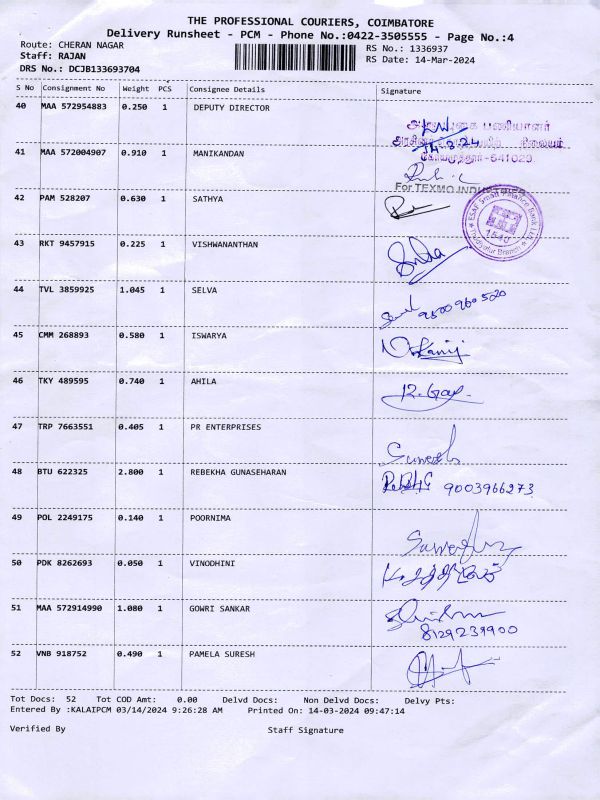 THE PROFESSIONAL COURIERS, COIMBATORE
Delivery Runsheet - PCM - Phone No.:0422-3505555 - Page No.:4
Route: CHERAN NAGAR
RS No.: 1336937
Staff: RAJAN
RS Date: 14-Mar-2024
DRS No.: DCJB133693704
S No Consignment No Weight PCS Consignee Details Signature
40 MAA 572954883 0.250 1 DEPUTY DIRECTOR
14.3.24
கோயமுத்தூர்-641029.
41 MAA 572004907 0.910 1 MANIKANDAN
For TEXMO INDUSTRIES
42 PAM 528207 0.630 1 SATHYA
ESAF Small Finance Bank Ltd.
1540
Branch
43 RKT 9457915 0.225 1 VISHWANANTHAN
44 TVL 3859925 1.045 1 SELVA
9500960 5020
45 CMM 268893 0.580 1 ISWARYA
46 TKY 489595 0.740 1 AHILA
47 TRP 7663551 0.405 1 PR ENTERPRISES
48 BTU 622325 2.800 1 REBEKHA GUNASEHARAN
9003966273
49 POL 2249175 0.140 1 POORNIMA
50 PDK 8262693 0.050 1 VINODHINI
51 MAA 572914990 1.080 1 GOWRI SANKAR
8129239900
52 VNB 918752 0.490 1 PAMELA SURESH
Tot Docs: 52 Tot COD Amt: 0.00 Delvd Docs: Non Delvd Docs: Delvy Pts:
Entered By :KALAIPCM 03/14/2024 9:26:28 AM Printed On: 14-03-2024 09:47:14
Verified By Staff Signature